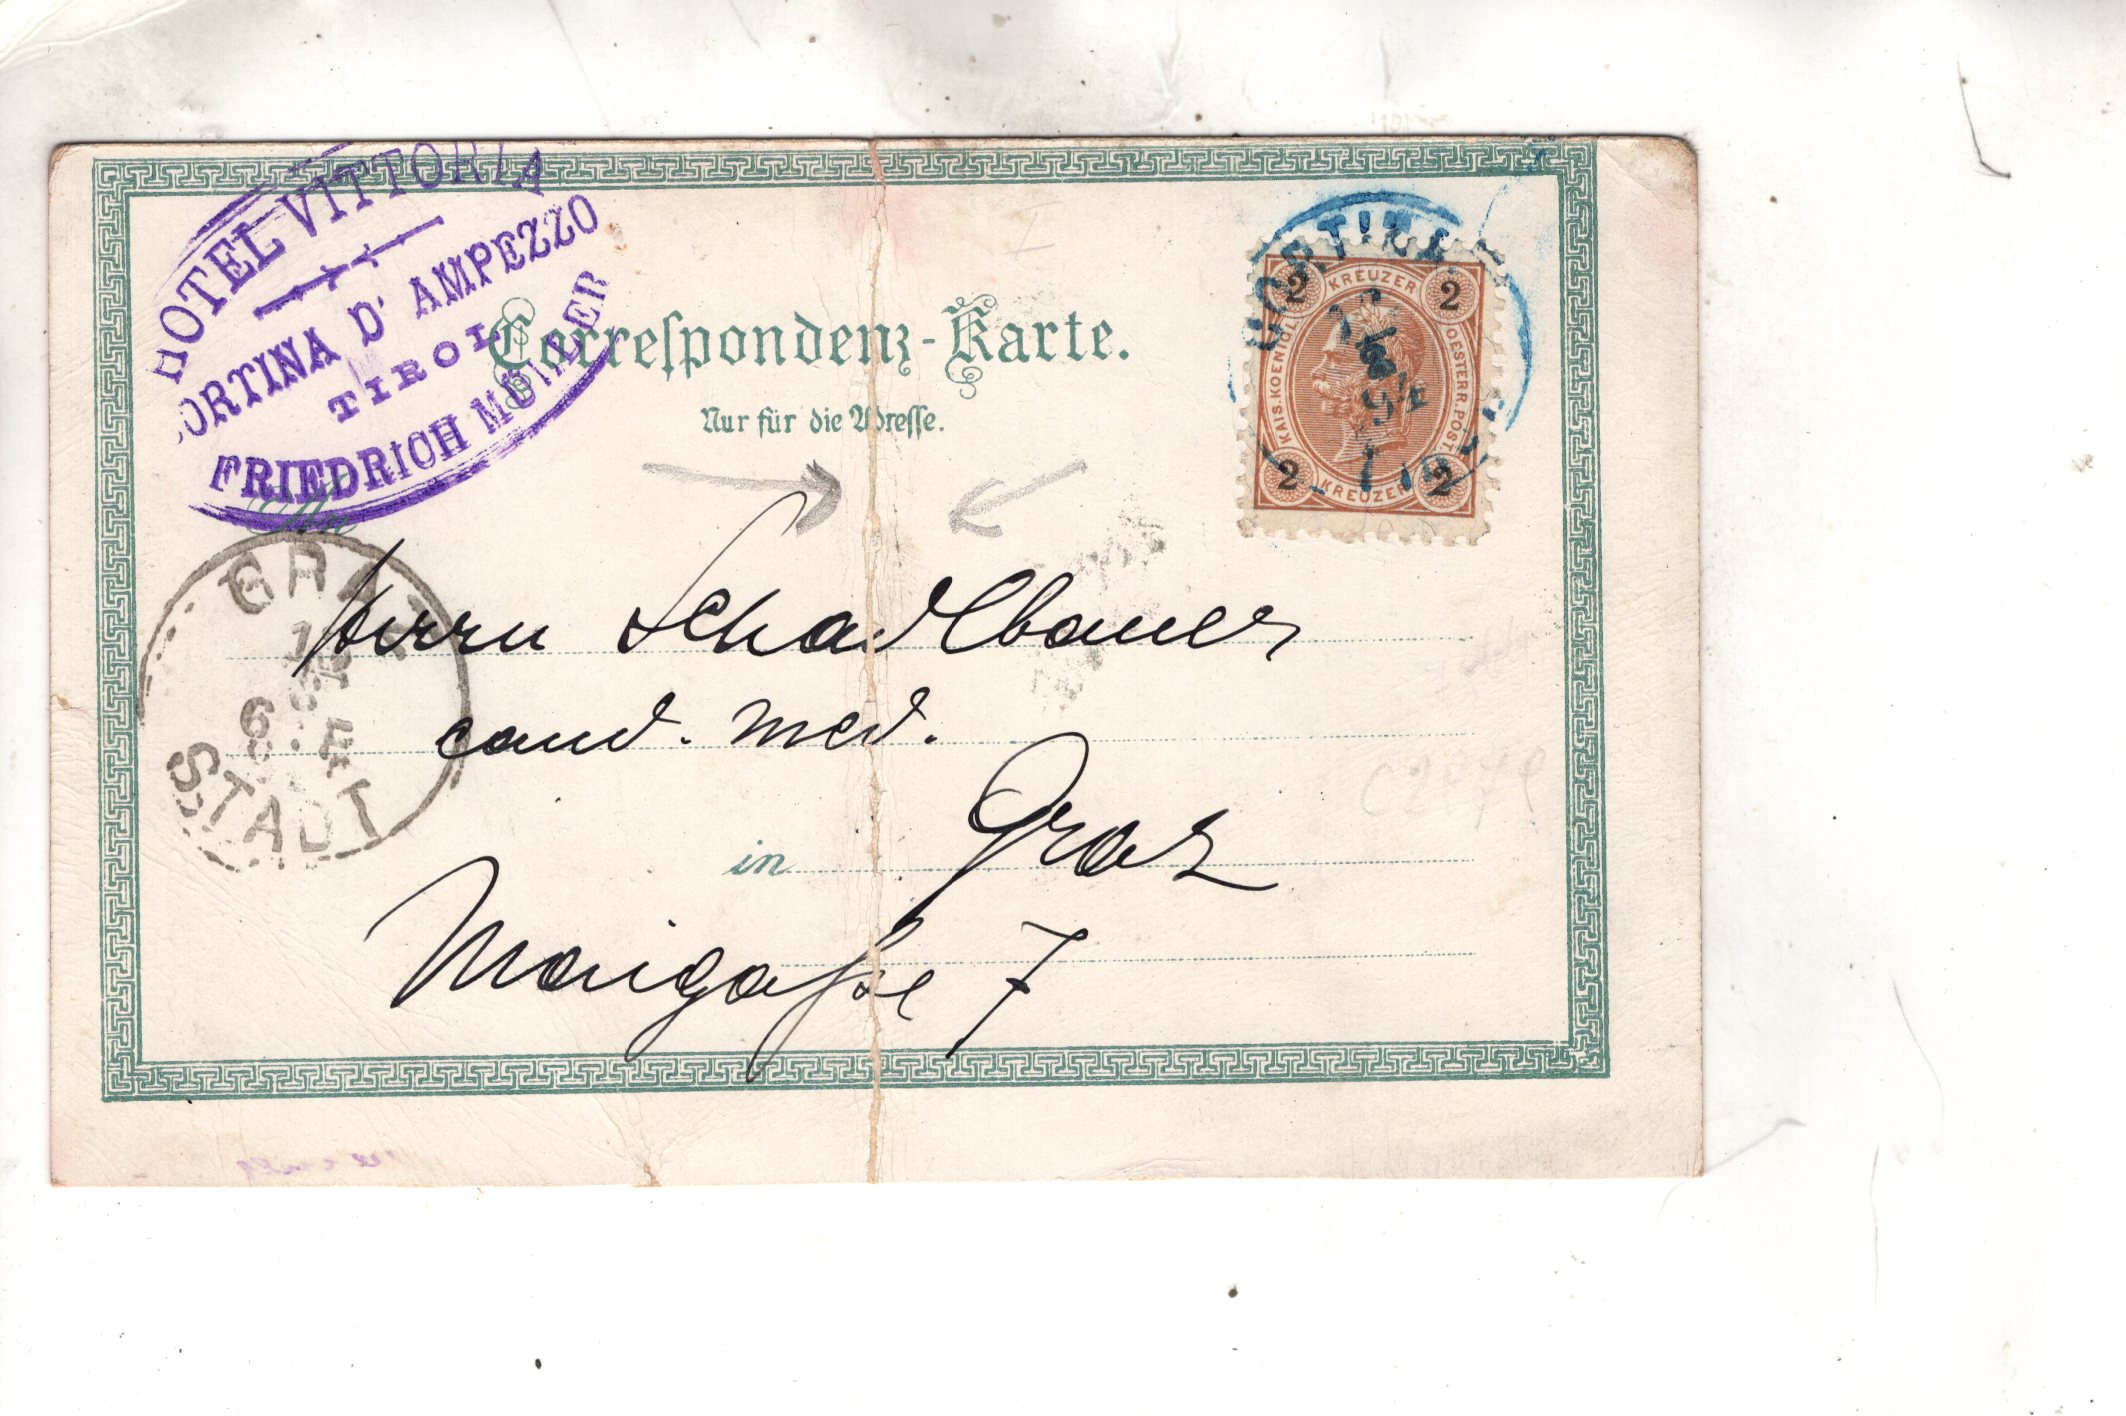 HOTEL VITTORIA
CORTINA D' AMPEZZO
TIROL
FRIEDRICH MÜLLER
Correſpondenz-Karte.
Nur für die Adreſſe.
2 KREUZER 2
KAIS. KOENIGL. OESTERR. POST
2 KREUZER 2
CORTINA
An
GRAZ
STADT
Herrn Schadlbauer
cand. med.
in Graz
Maigaſse 7